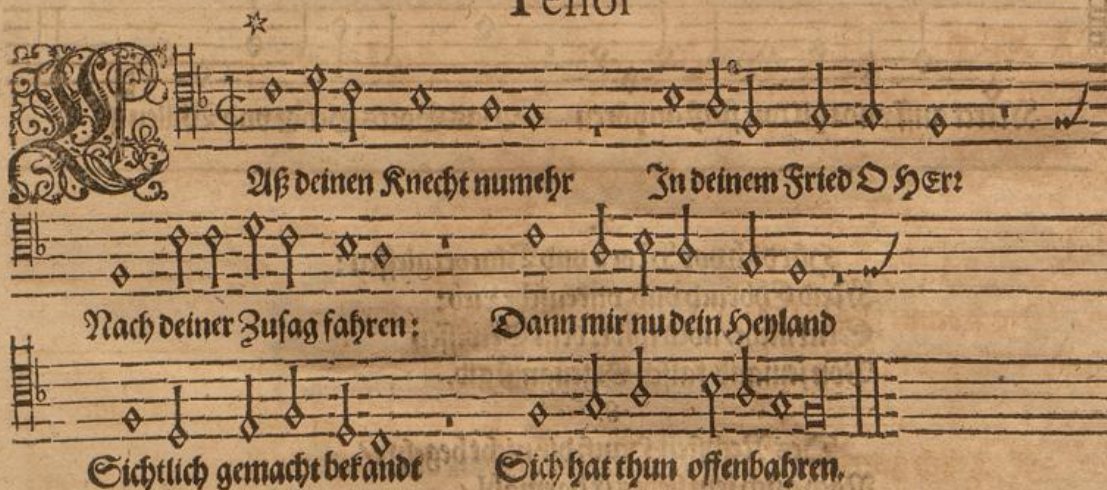 Tenor
LAß deinen Knecht numehr In deinem Fried O HErr
Nach deiner Zusag fahren: Dann mir nu dein Heyland
Sichtlich gemacht bekandt Sich hat thun offenbahren.